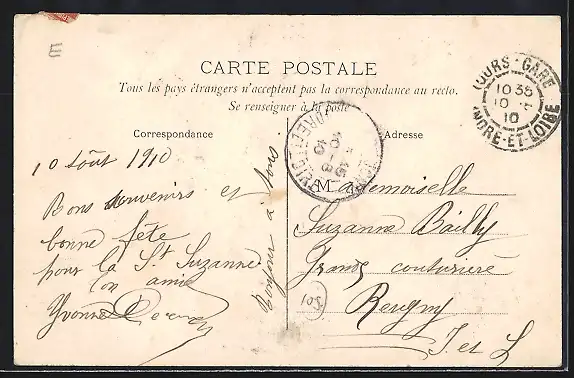 E
CARTE POSTALE
Tous les pays étrangers n'acceptent pas la correspondance au recto.
Se renseigner à la poste
Correspondance
Adresse
10 Août 1910
Bons souvenirs et
bonne fête
pour la St Suzanne
ton amie
Yvonne
Bonjour à tous
Mademoiselle
Suzanne Bailly
Grande couturière
Reugny
I. et L
TOURS-GARE
10 35
10
10
INDRE-ET-LOIRE
INDRE-ET-LOIRE